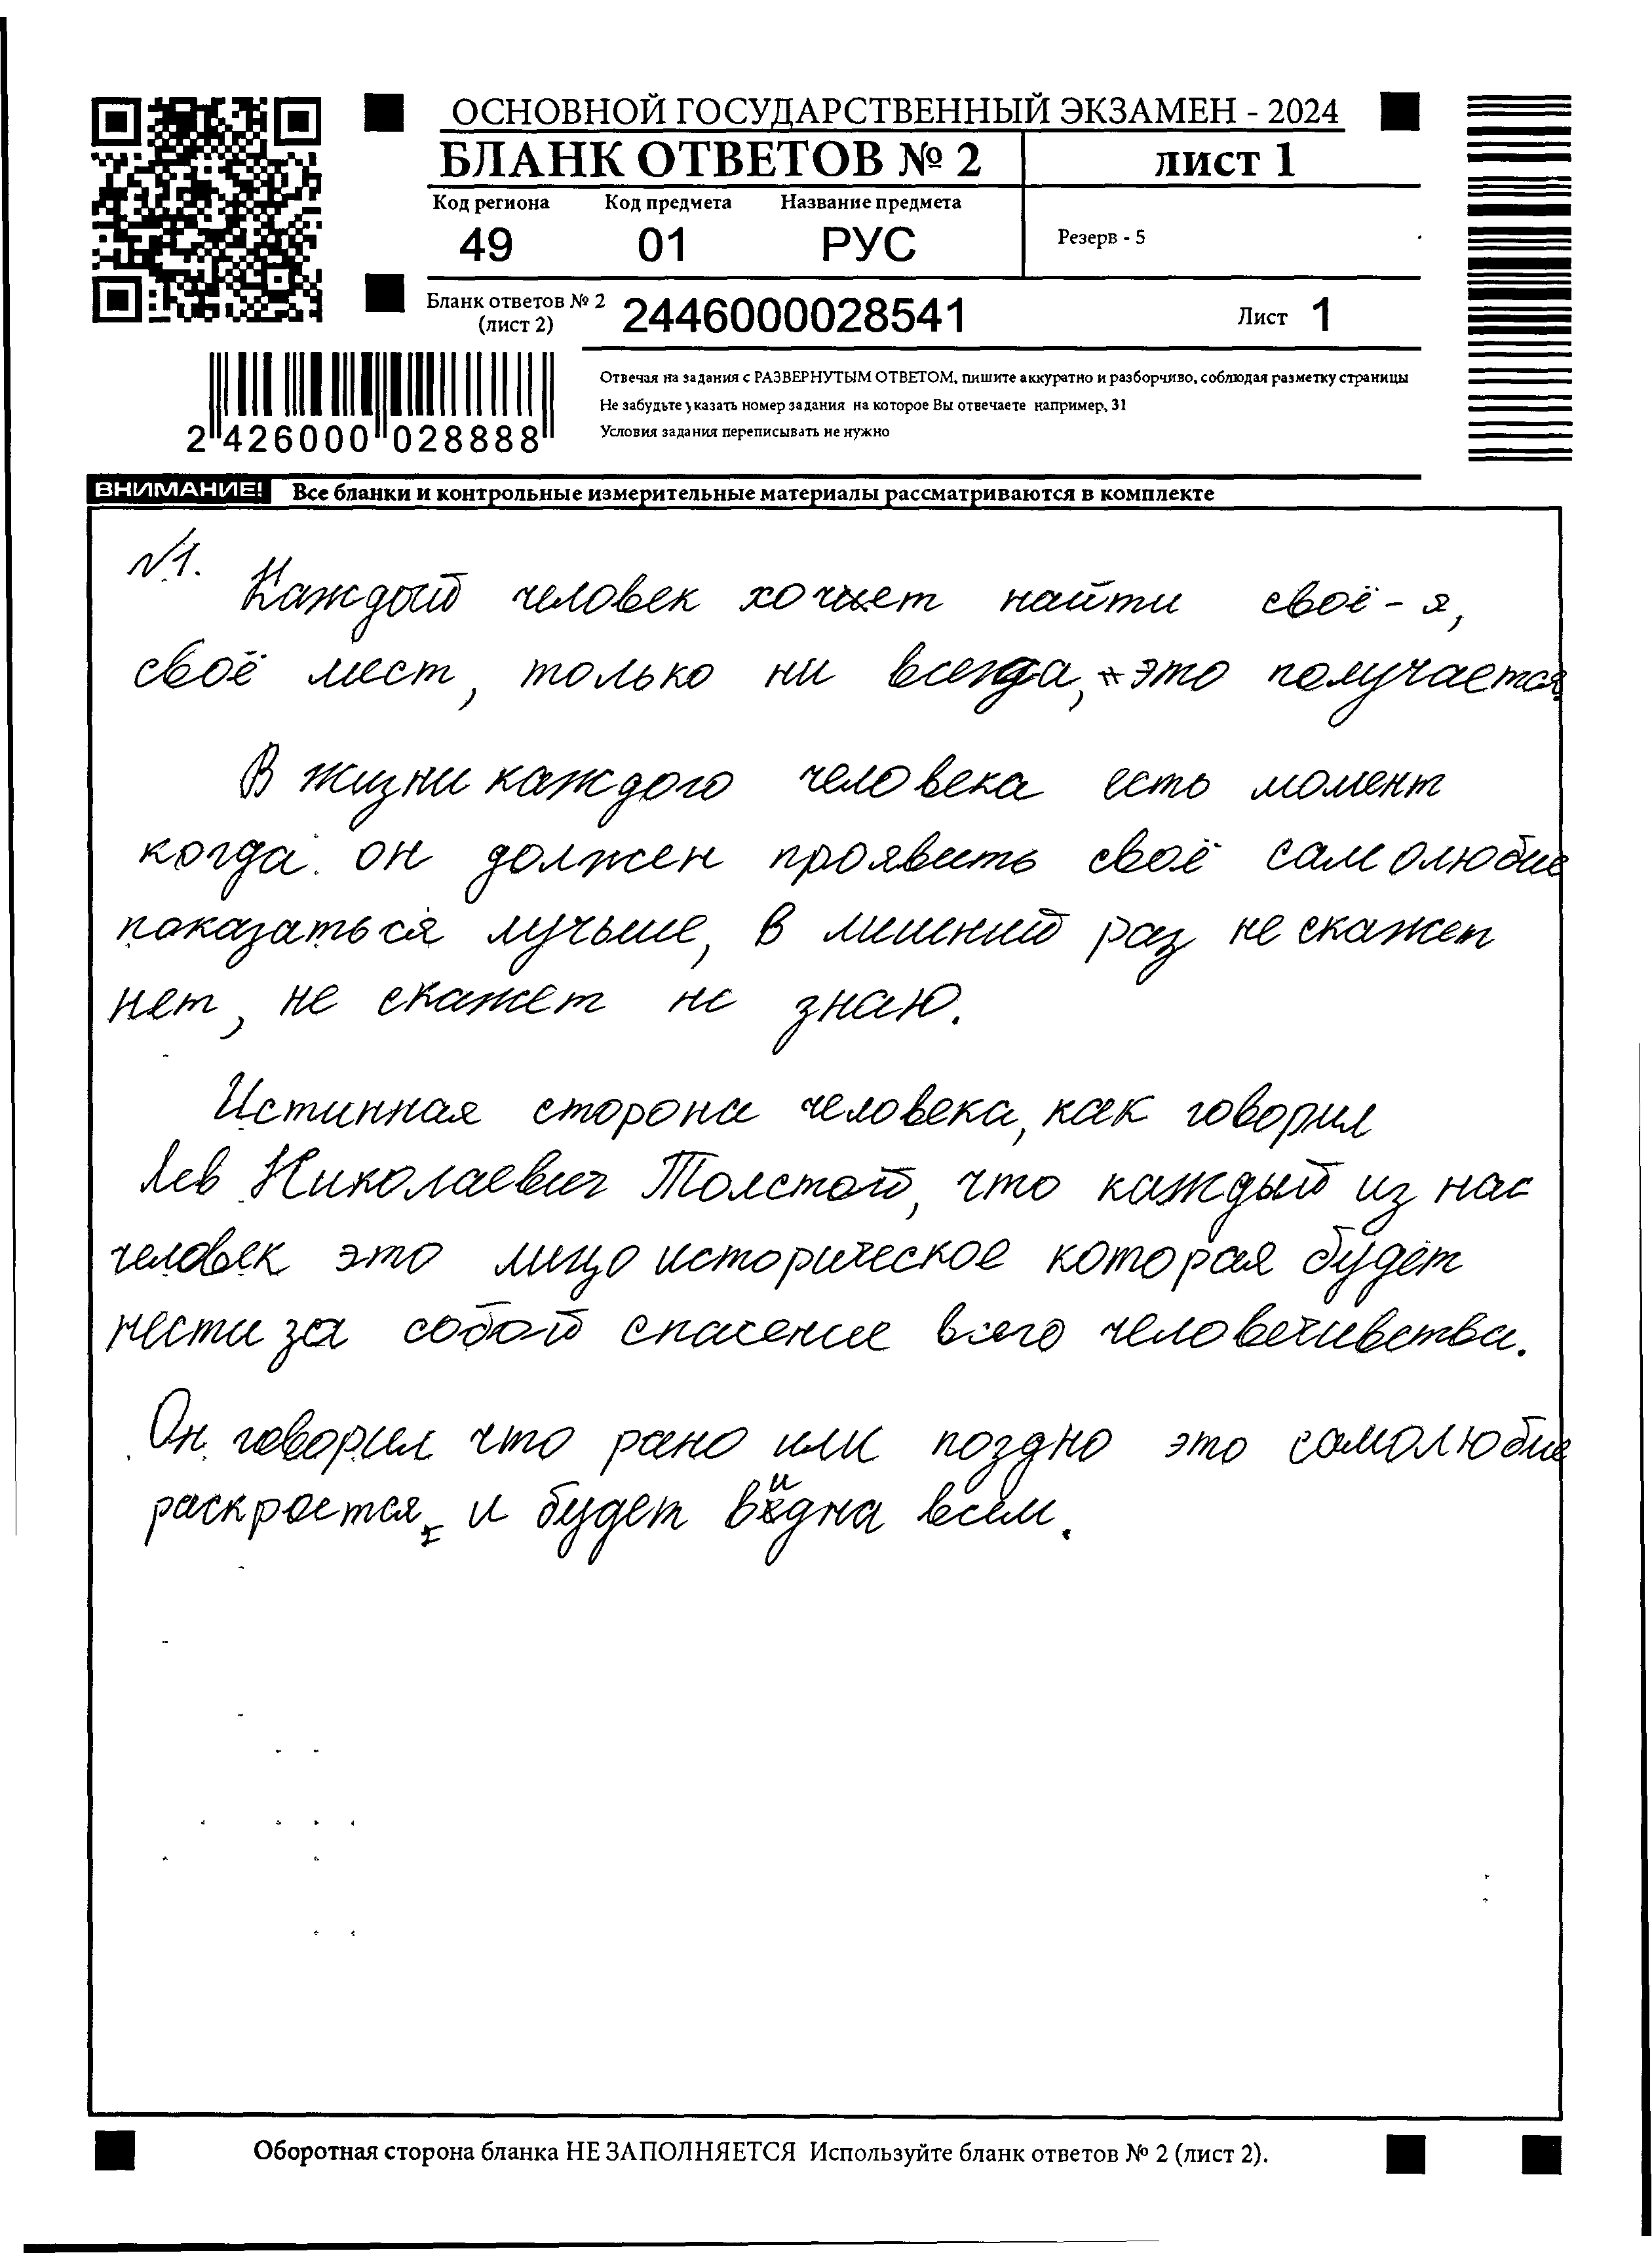 ОСНОВНОЙ ГОСУДАРСТВЕННЫЙ ЭКЗАМЕН - 2024
БЛАНК ОТВЕТОВ № 2
лист 1
Код региона Код предмета Название предмета
49 01 РУС
Резерв - 5
Бланк ответов № 2
(лист 2)
2446000028541
Лист 1
2 426000 028888
Отвечая на задания с РАЗВЕРНУТЫМ ОТВЕТОМ, пишите аккуратно и разборчиво, соблюдая разметку страницы
Не забудьте указать номер задания на которое Вы отвечаете например, 31
Условия задания переписывать не нужно
ВНИМАНИЕ! Все бланки и контрольные измерительные материалы рассматриваются в комплекте
№1.
Каждый человек хочет найти своё - я,
своё мест, только ни всегда, это получается.
В жизни каждого человека есть момент
когда он должен проявить своё самолюбие
показаться лучьше, в лишний раз не скажет
нет, не скажет не знаю.
Истинная сторона человека, как говорил
Лев Николаевич Толстой, что каждый из нас
человек это лицо историческое которая будет
нести за собой спасение всего человечивства.
Он говорил что рано или поздно это самолюбие
раскроется, и будет видна всем.
Оборотная сторона бланка НЕ ЗАПОЛНЯЕТСЯ Используйте бланк ответов № 2 (лист 2).